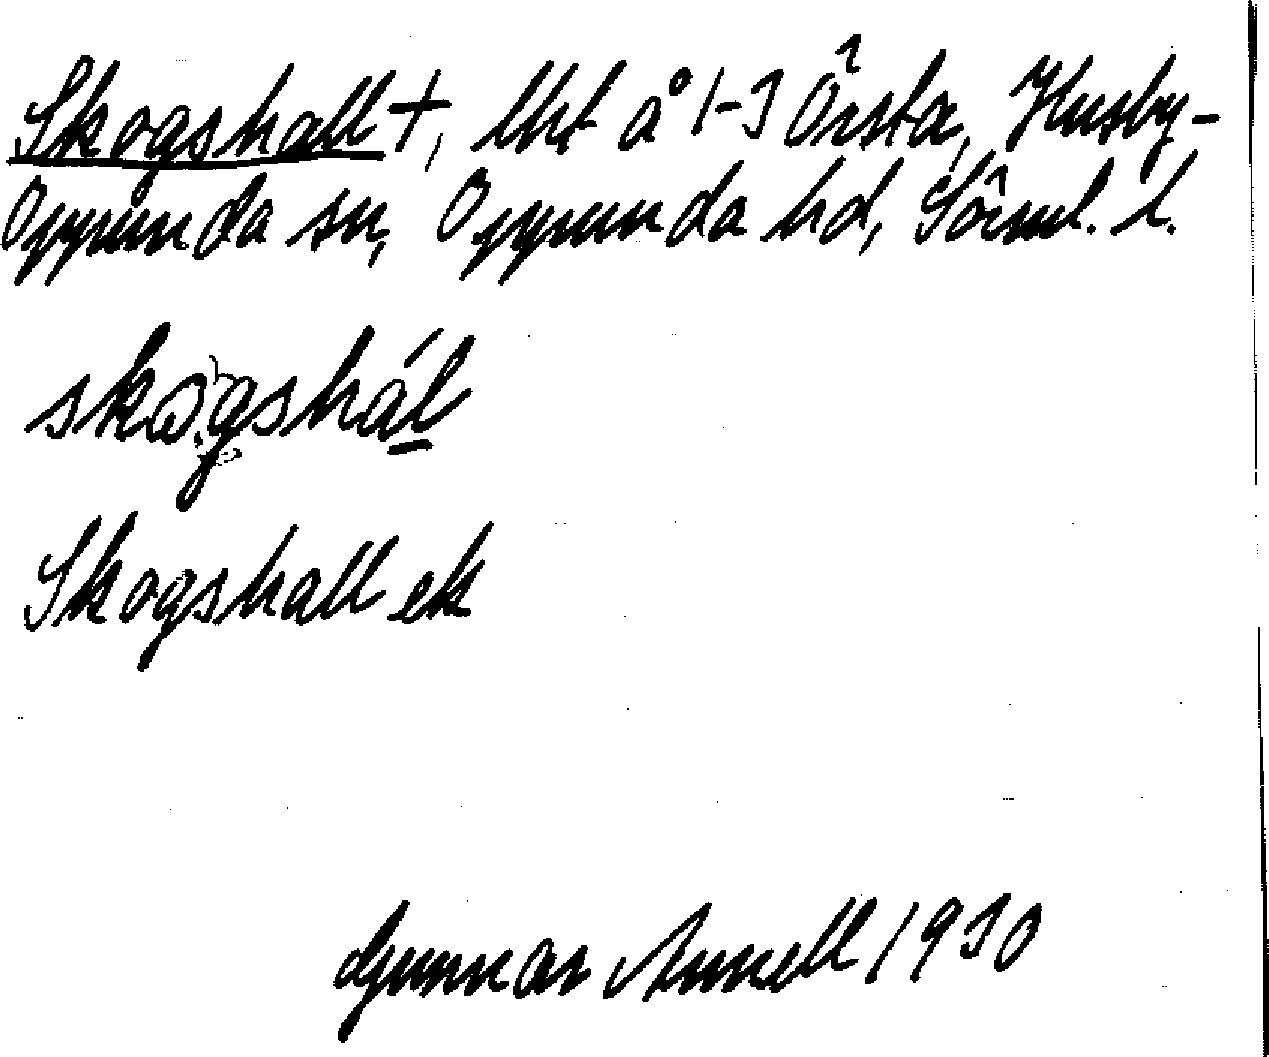 Skogshall +, lht å 1-3 Örsta, Husby-
Oppunda sn, Oppunda hd, Söml. l.
skogshál
Skogshall ek
Gunnar Annell 1930